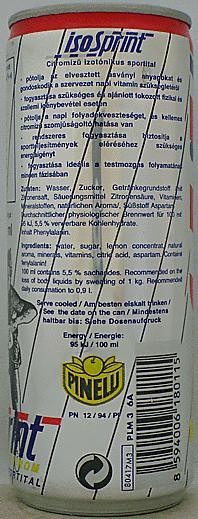 isoSprint
Citromízű izotónikus sportital
- pótolja az elvesztett ásványi anyagokat és
gondoskodik a szervezet napi vitamin szükségletéről
- fogyasztása szükséges és ajánlott fokozott fizikai és
szellemi igénybevétel esetén
- pótolja a napi folyadékveszteséget, és kellemes
citromíz szomjúságoltó hatása van
- rendszeres fogyasztása biztosítja a
sportteljesítmények eléréséhez szükséges
energiaigényt
- fogyasztása ideális a testmozgás folyamatában
minden fázisában
Zutaten: Wasser, Zucker, Getränkegrundstoff mit
Zitronensaft, Säuerungsmittel Zitronensäure, Vitaminen,
Mineralstoffen, natürlichen Aroma/, Süßstoff Aspartam
Durchschnittlicher physiologischer Brennwert für 100 ml
95 kJ, 5,5 % verwerbare Kohlenhydrate.
Inhalt Phenylalanin.
Ingredients: water, sugar, lemon concentrat, natural
aroma, minerals, vitamins, citric acid, aspartam. Contains
phenylalanin!
100 ml contains 5,5 % sachandes. Recommended on the
loss of body liquids by sweating of 1 kg. Recommended
daily consumation to 0,9 l.
Serve cooled / Am besten eiskalt trinken /
See the date on the can / Mindestens
haltbar bis: Siehe Dosenaufdruck
Energy / Energie:
95 kJ / 100 ml
PINELLI
PN 12 / 94 / P
80417M3
PLM 3 GA
8 594006 180115
rint
ROM
RTITAL